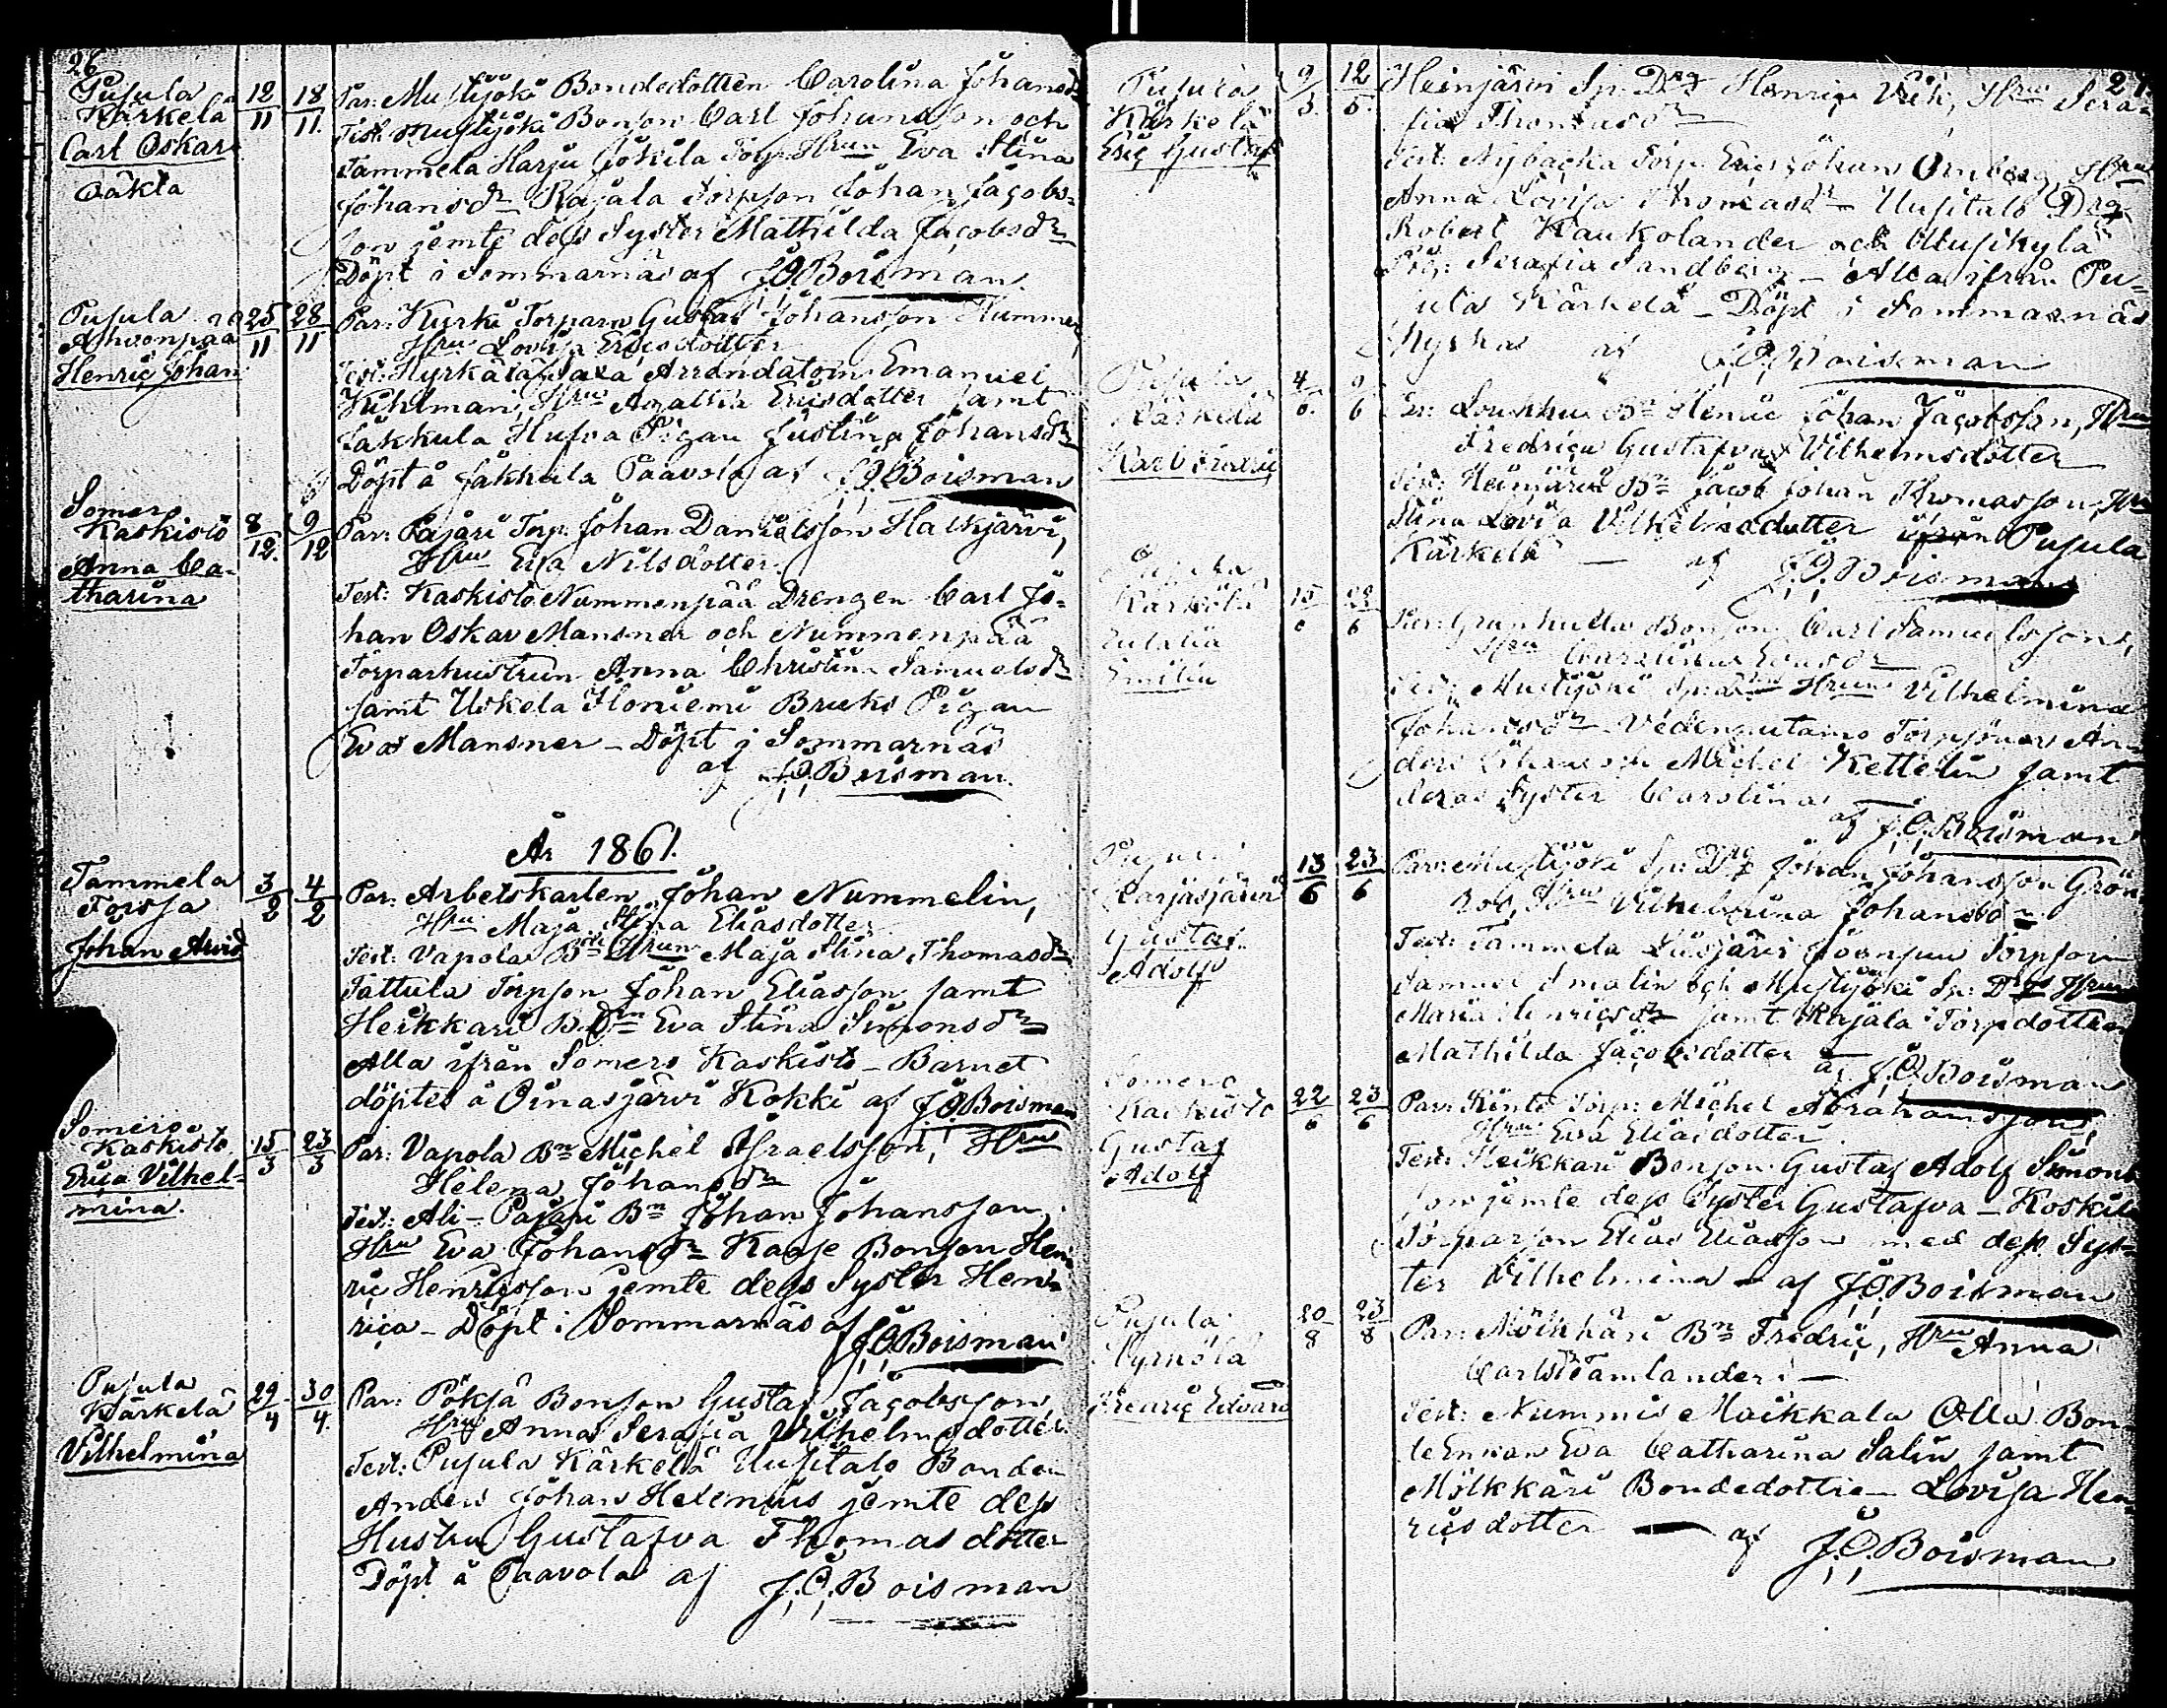 26
Pusula
Kärkelä
Carl Oskar
Oäkta
12/11 18/11.
Par: Mustjoki Bondedottren Carolina Johansdr
Test. Mustjoki Bonson Carl Johansson och
Tammela Harju Jokila Torp. Hrun Eva Stina
Johansdr Rajala Torpson Johan Jacobs-
son jemte dess Syster Mathilda Jacobsdr
Döpt i Sommarnäs af J.O. Boisman.
Pusula
Ahvonpää
Henric Johan
25/11 28/11
Par: Kurki Torparn Gustaf Johansson Hummer
Hru Lovisa Ericsdotter
Test: Hyrkälä Arrendatorn Emanuel
Kuhlman, Hru Agatha Ericsdotter samt
Jakkula Hufva Pigan Justina Johansdr
Döpt å Jakkula Paavola af J.O. Boisman
Somero
Kaskisto
Anna Ca-
tharina
8/12. 9/12
Par: Pajari Torp. Johan Danielsson Halkjärvi,
Hru Eva Nilsdotter.
Test: Kaskisto Nummenpää Drengen Carl Jo-
han Oskar Mansner och Nummenpää
Torparhustrun Anna Christina Samuelsdr
samt Uskela Honiemi Bruks Pigan
Eva Mansner - Döpt i Sommarnäs
af J.O. Boisman.
År 1861.
Tammela
Forssa
Johan Arvid
3/2 4/2
Par: Arbetskarlen Johan Nummelin,
Hru Maja Stina Eliasdotter
Test: Vapola Bde Hrun Maja Stina Thomasdr
Tattula Torpson Johan Eliasson samt
Heikkari B. Drn Eva Stina Simonsdr
Alla ifrån Somero Kaskisto - Barnet
döptes å Oinasjärvi Kokki af J.O. Boisman
Somero
Kaskisto
Erica Vilhel-
mina.
15/3 23/3
Par: Vapola Bn Michel Israelsson, Hru
Helena Johansdr
Test: Ali-Pajari Bn Johan Johansson,
Hru Eva Johansdr Kaase Bonson Hen-
ric Henricsson jemte dess Syster Hen-
rica - Döpt i Sommarnäs af J.O. Boisman
Pusula
Kärkelä
Vilhelmina
29/4 30/4.
Par: Pöksä Bonson Gustaf Jacobsson
Hru Anna Serafia Vilhelmsdotter
Test: Pusula Kärkelä Uusitalo Bonden
Anders Johan Helenius jemte dess
Hustru Gustafva Thomasdotter
Döpt å Paavola af J.O. Boisman
27.
Pusula
Kärkelä
Eric Gustaf
9/5. 12/5.
Heinjärvi Sp. Drg Henric Vük, Hru Sera-
fia Thomasdr
Test: Nybacka Torp. Eric Johan Ornberg, Hru
Anna Lovisa Thomasdr Uusitalo Drg.
Robert Kaukolander och Uusikylä
Pig. Serafia Sandberg - Alla ifrån Pu-
sula Kärkelä - Döpt i Sommarnäs
Kyrka af J.O. Boisman
Pusula
Kärkelä
Karl Fredric
4/6. 9/6
Par: Loukku Bn Henric Johan Jacobsson, Hru
Fredrica Gustafva Vilhelmsdotter
Test: Heinjärvi Bn Jacob Johan Thomasson, Hru
Stina Lovisa Vilhelmsdotter ifrån Pusula
Kärkelä — af J.O. Boisman
Pusula
Kärkelä
Eulalia
Emilia
15/6
Par: Bonson Carl Samuelsson,
Hru
Test: Mustjoki Hrun Vilhelmina
Johansdr Torpsöner An-
ders Michel Kettelin samt
deras Syster Carolina
af J.O. Boisman
Pusula
Karjasjärvi
Gustaf
Adolf
13/6 23/6
Par: Mustjoki Sp. Drg Johan Johansson Grön-
roo, Hru Vilhelmina Johansdr.
Test: Tammela Liesjärvi Torpson
Samuel Smalin och Mustjoki Sp. Drgs Hru
Maria Henricsdr samt Rajala Torpdottren
Mathilda Jacobsdotter af J.O. Boisman
Somero
Kaskisto
Gustaf
Adolf
22/6 23/6
Par: Torp: Michel Abrahamsson,
Hru Eva Eliasdotter.
Test: Heikkari Bonson Gustaf Adolf Simons-
son jemte dess Syster Gustafva - Koskila
Torparson Elias Eliasson med dess Sys-
ter Vilhelmina - af J.O. Boisman
Pusula
Hyrsölä
Fredric Edvard
20/8 23/8
Par: Mölkkäri Bn Fredric, Hru Anna
Carlsdr Tamlander i —
Test: Nummis Maikkala Olla Bon-
de Enkan Eva Catharina Salin samt
Mölkkäri Bondedottren Lovisa Hen-
ricsdotter — af J.O. Boisman